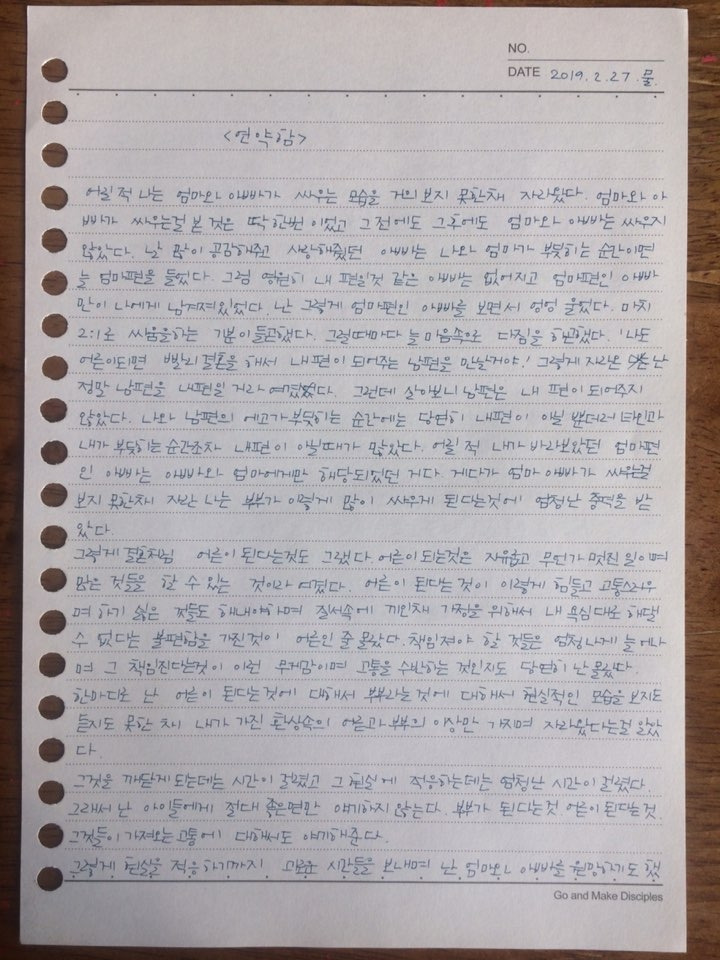 NO.
DATE 2019. 2. 27. 물.
<연약함>
어릴적 나는 엄마와 아빠가 싸우는 모습을 거의 보지 못한채 자라왔다. 엄마와 아
빠가 싸우는걸 본 것은 딱 한번 이었고 그전에도 그후에도 엄마와 아빠는 싸우지
않았다. 날 많이 공감해주고 사랑해줬던 아빠는 나와 엄마가 부딪히는 순간이면
늘 엄마편을 들었다. 그럼 영원히 내 편일것 같은 아빠는 없어지고 엄마편인 아빠
만이 나에게 남겨져있었다. 난 그렇게 엄마편인 아빠를 보면서 엉엉 울었다. 마치
2:1로 싸움을하는 기분이 들곤했다. 그럴때마다 늘 마음속으로 다짐을 하곤했다. '나도
어른이되면 빨리 결혼을 해서 내 편이 되어주는 남편을 만날거야!' 그렇게 자라온 난
정말 남편을 내편일 거라 여겼었다. 그런데 살아보니 남편은 내 편이 되어주지
않았다. 나와 남편의 에고가 부딪히는 순간에는 당연히 내편이 아닐 뿐더러 타인과
내가 부딪히는 순간조차 내편이 아닐때가 많았다. 어릴 적 내가 바라보았던 엄마편
인 아빠는 아빠와 엄마에게만 해당되었던 거다. 게다가 엄마 아빠가 싸우는걸
보지 못한채 자란 나는 부부가 이렇게 많이 싸우게 된다는것에 엄청난 충격을 받
았다.
그렇게 결혼처럼 어른이 된다는것도 그랬다. 어른이 되는것은 자유롭고 무언가 멋진 일이며
많은 것들을 할 수 있는 것이라 여겼다. 어른이 된다는 것이 이렇게 힘들고 고통스러우
며 하기 싫은 것들도 해내야하며 질서속에 끼인채 가정을 위해서 내 욕심대로 해댈
수 없다는 불편함을 가진것이 어른인 줄 몰랐다. 책임져야 할 것들은 엄청나게 늘어나
며 그 책임진다는것이 이런 무게감이며 고통을 수반하는 것인지도 당연히 난 몰랐다.
한마디로 난 어른이 된다는것에 대해서 부부라는 것에 대해서 현실적인 모습을 보지도
듣지도 못한 채 내가 가진 환상속의 어른과 부부의 이상만 가지며 자라왔다는걸 알았
다.
그것을 깨닫게 되는데는 시간이 걸렸고 그 현실에 적응하는데는 엄청난 시간이 걸렸다.
그래서 난 아이들에게 절대 좋은면만 얘기하지 않는다. 부부가 된다는것. 어른이 된다는것.
그것들이 가져오는 고통에 대해서도 얘기해준다.
그렇게 현실을 적응하기까지 괴로운 시간들을 보내며 난 엄마와 아빠를 원망하기도 했
Go and Make Disciples